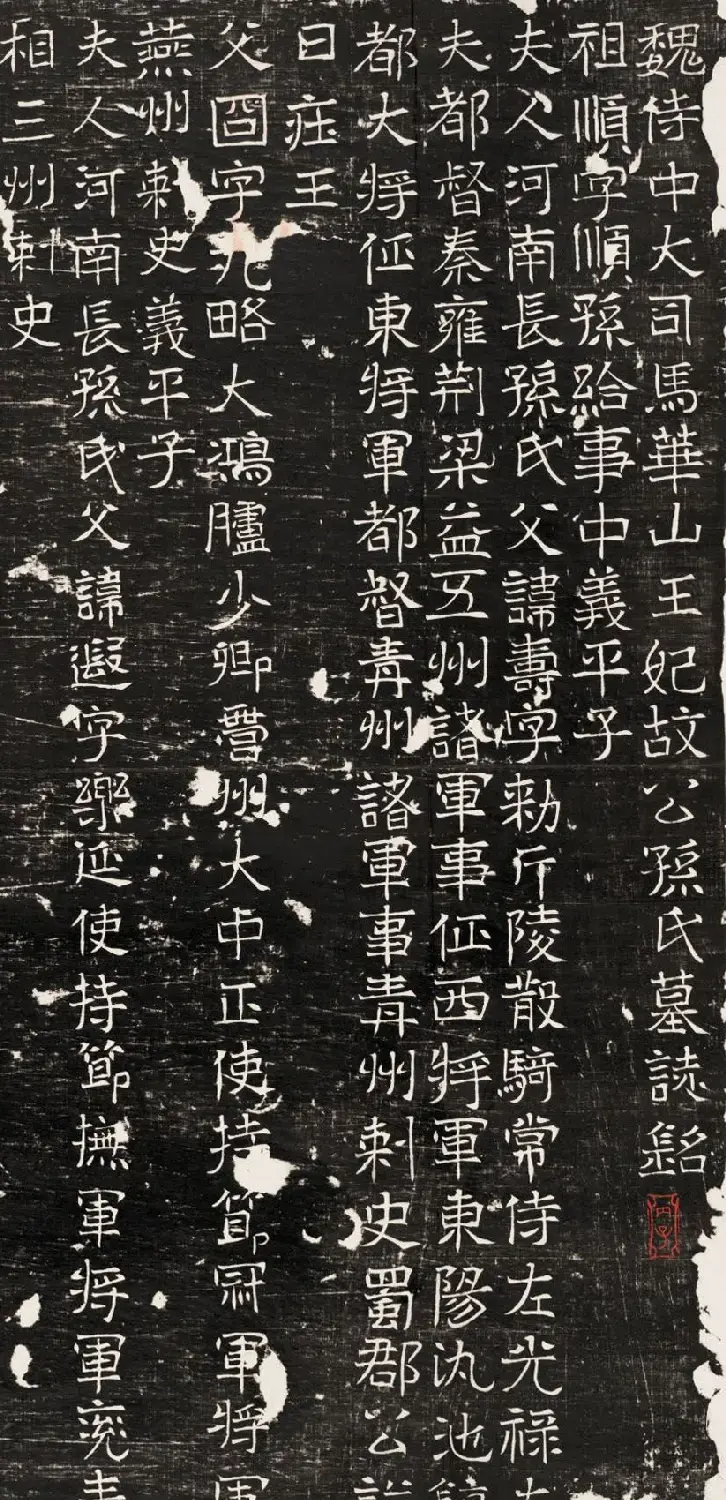 魏侍中大司馬華山王妃故公孫氏墓誌銘
祖順字順孫給事中義平子
夫人河南長孫氏父諱壽字勑斤陵散騎常侍左光禄大
夫都督秦雍荆梁益五州諸軍事征西將軍東陽仇池鎮
都大將征東將軍都督青州諸軍事青州刺史蜀郡公謚
曰莊王
父冏字九略大鴻臚少卿營州大中正使持節冠軍將軍
燕州刺史義平子
夫人河南長孫氏父諱遐字樂延使持節撫軍將軍兖青
相三州刺史